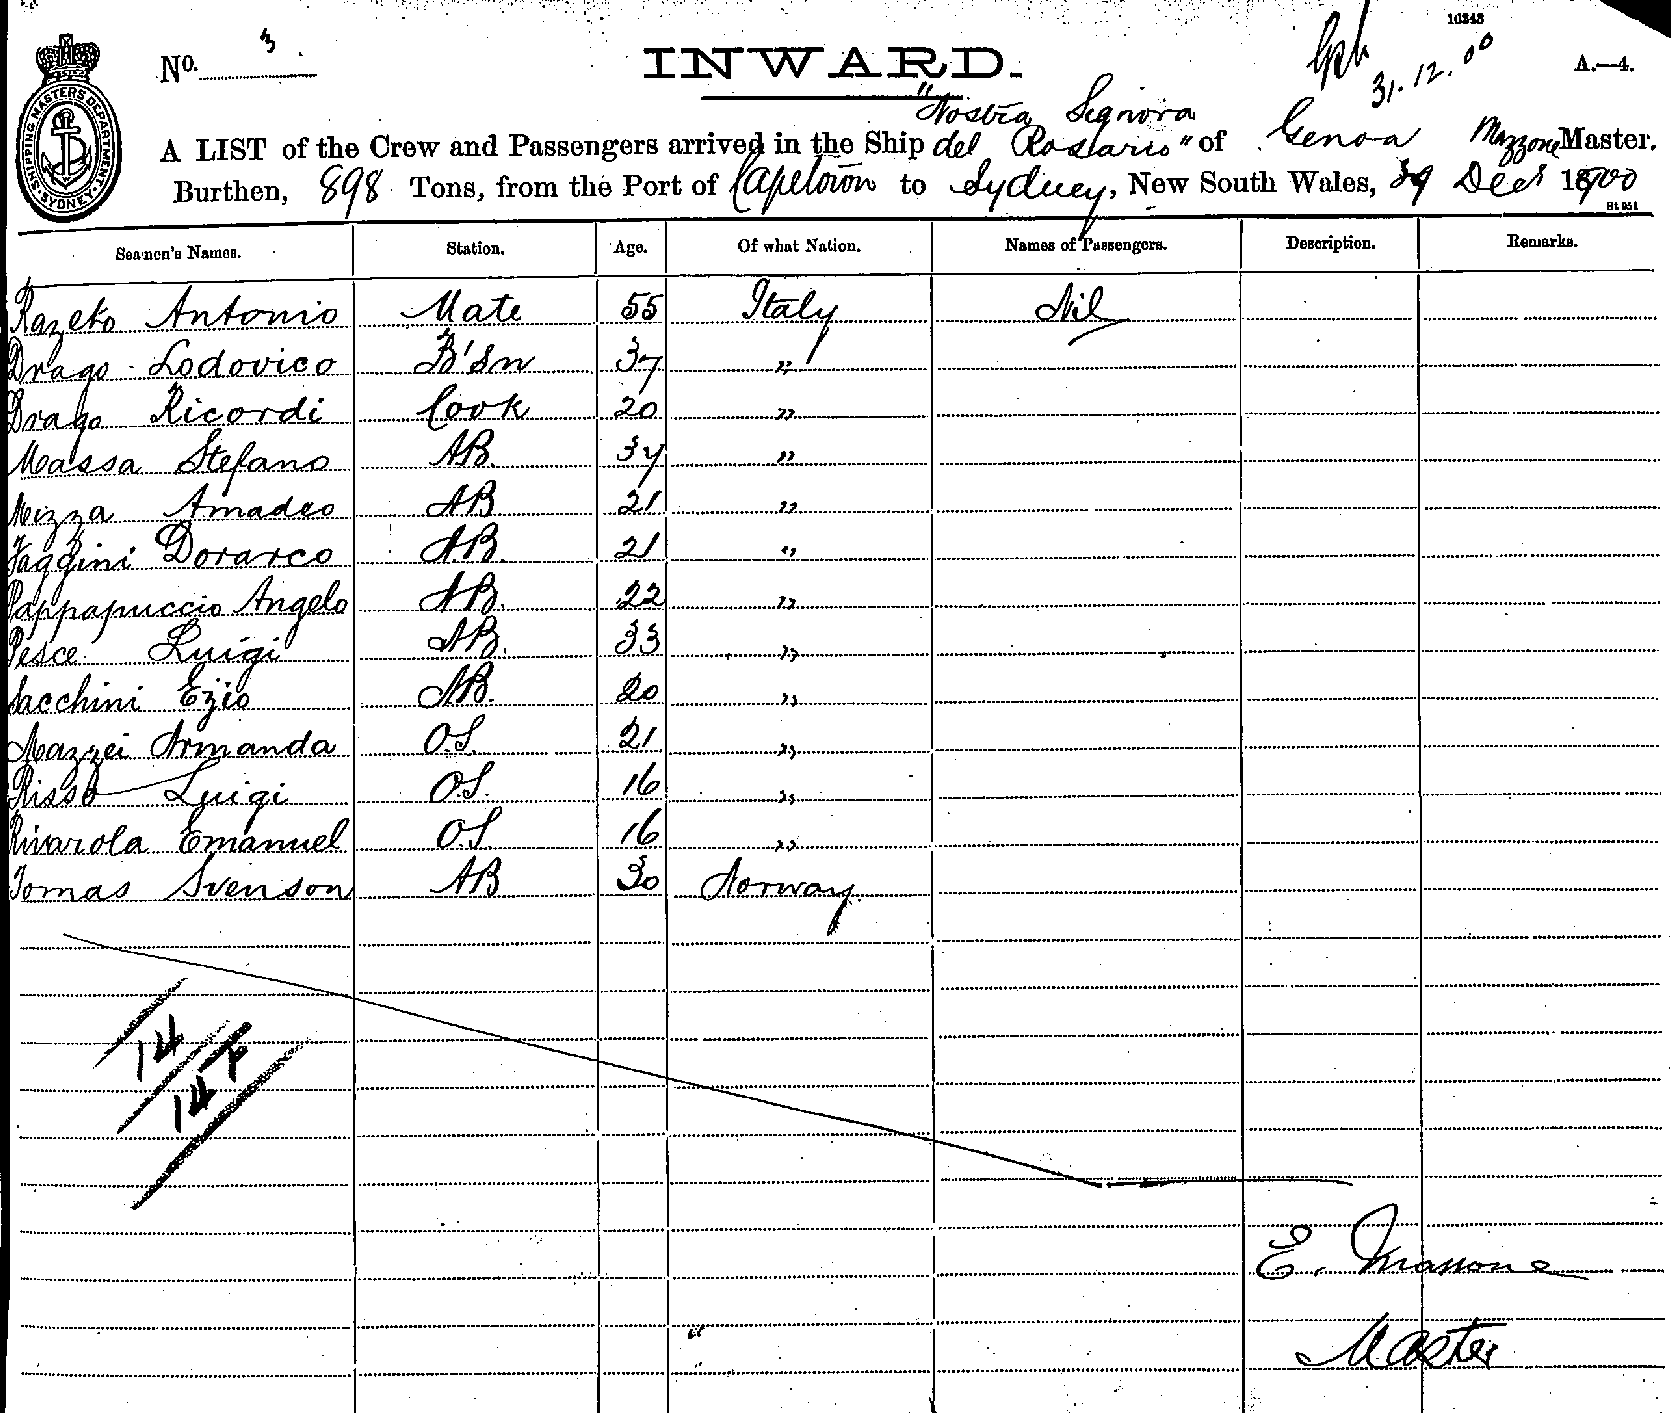 10343
No. 3.
INWARD.
31.12.00
A.—4.
SHIPPING MASTERS DEPARTMENT, SYDNEY
"Nostra Signora
A LIST of the Crew and Passengers arrived in the Ship del Rosario" of Genoa Mazzone Master.
Burthen, 898 Tons, from the Port of Capetown to Sydney, New South Wales, 29 Decr 1900
Seamen's Names. Station. Age. Of what Nation. Names of Passengers. Description. Remarks.
Razeto Antonio Mate 55 Italy Nil
Drago Lodovico B'Sn 37 "
Drago Ricordi Cook 20 "
Massa Stefano AB. 34 "
Nizza Amadeo AB 21 "
Faggini Dorarco AB. 21 "
Pappapuccio Angelo AB. 22 "
Pesce Luigi AB. 33 "
Sacchini Ezio AB. 20 "
Mazzei Armanda O.S. 21 "
Risso Luigi O.S. 16 "
Rivarola Emanuel O.S. 16 "
Tomas Svenson AB 30 Norway
14
14 F
E. Massone
Master